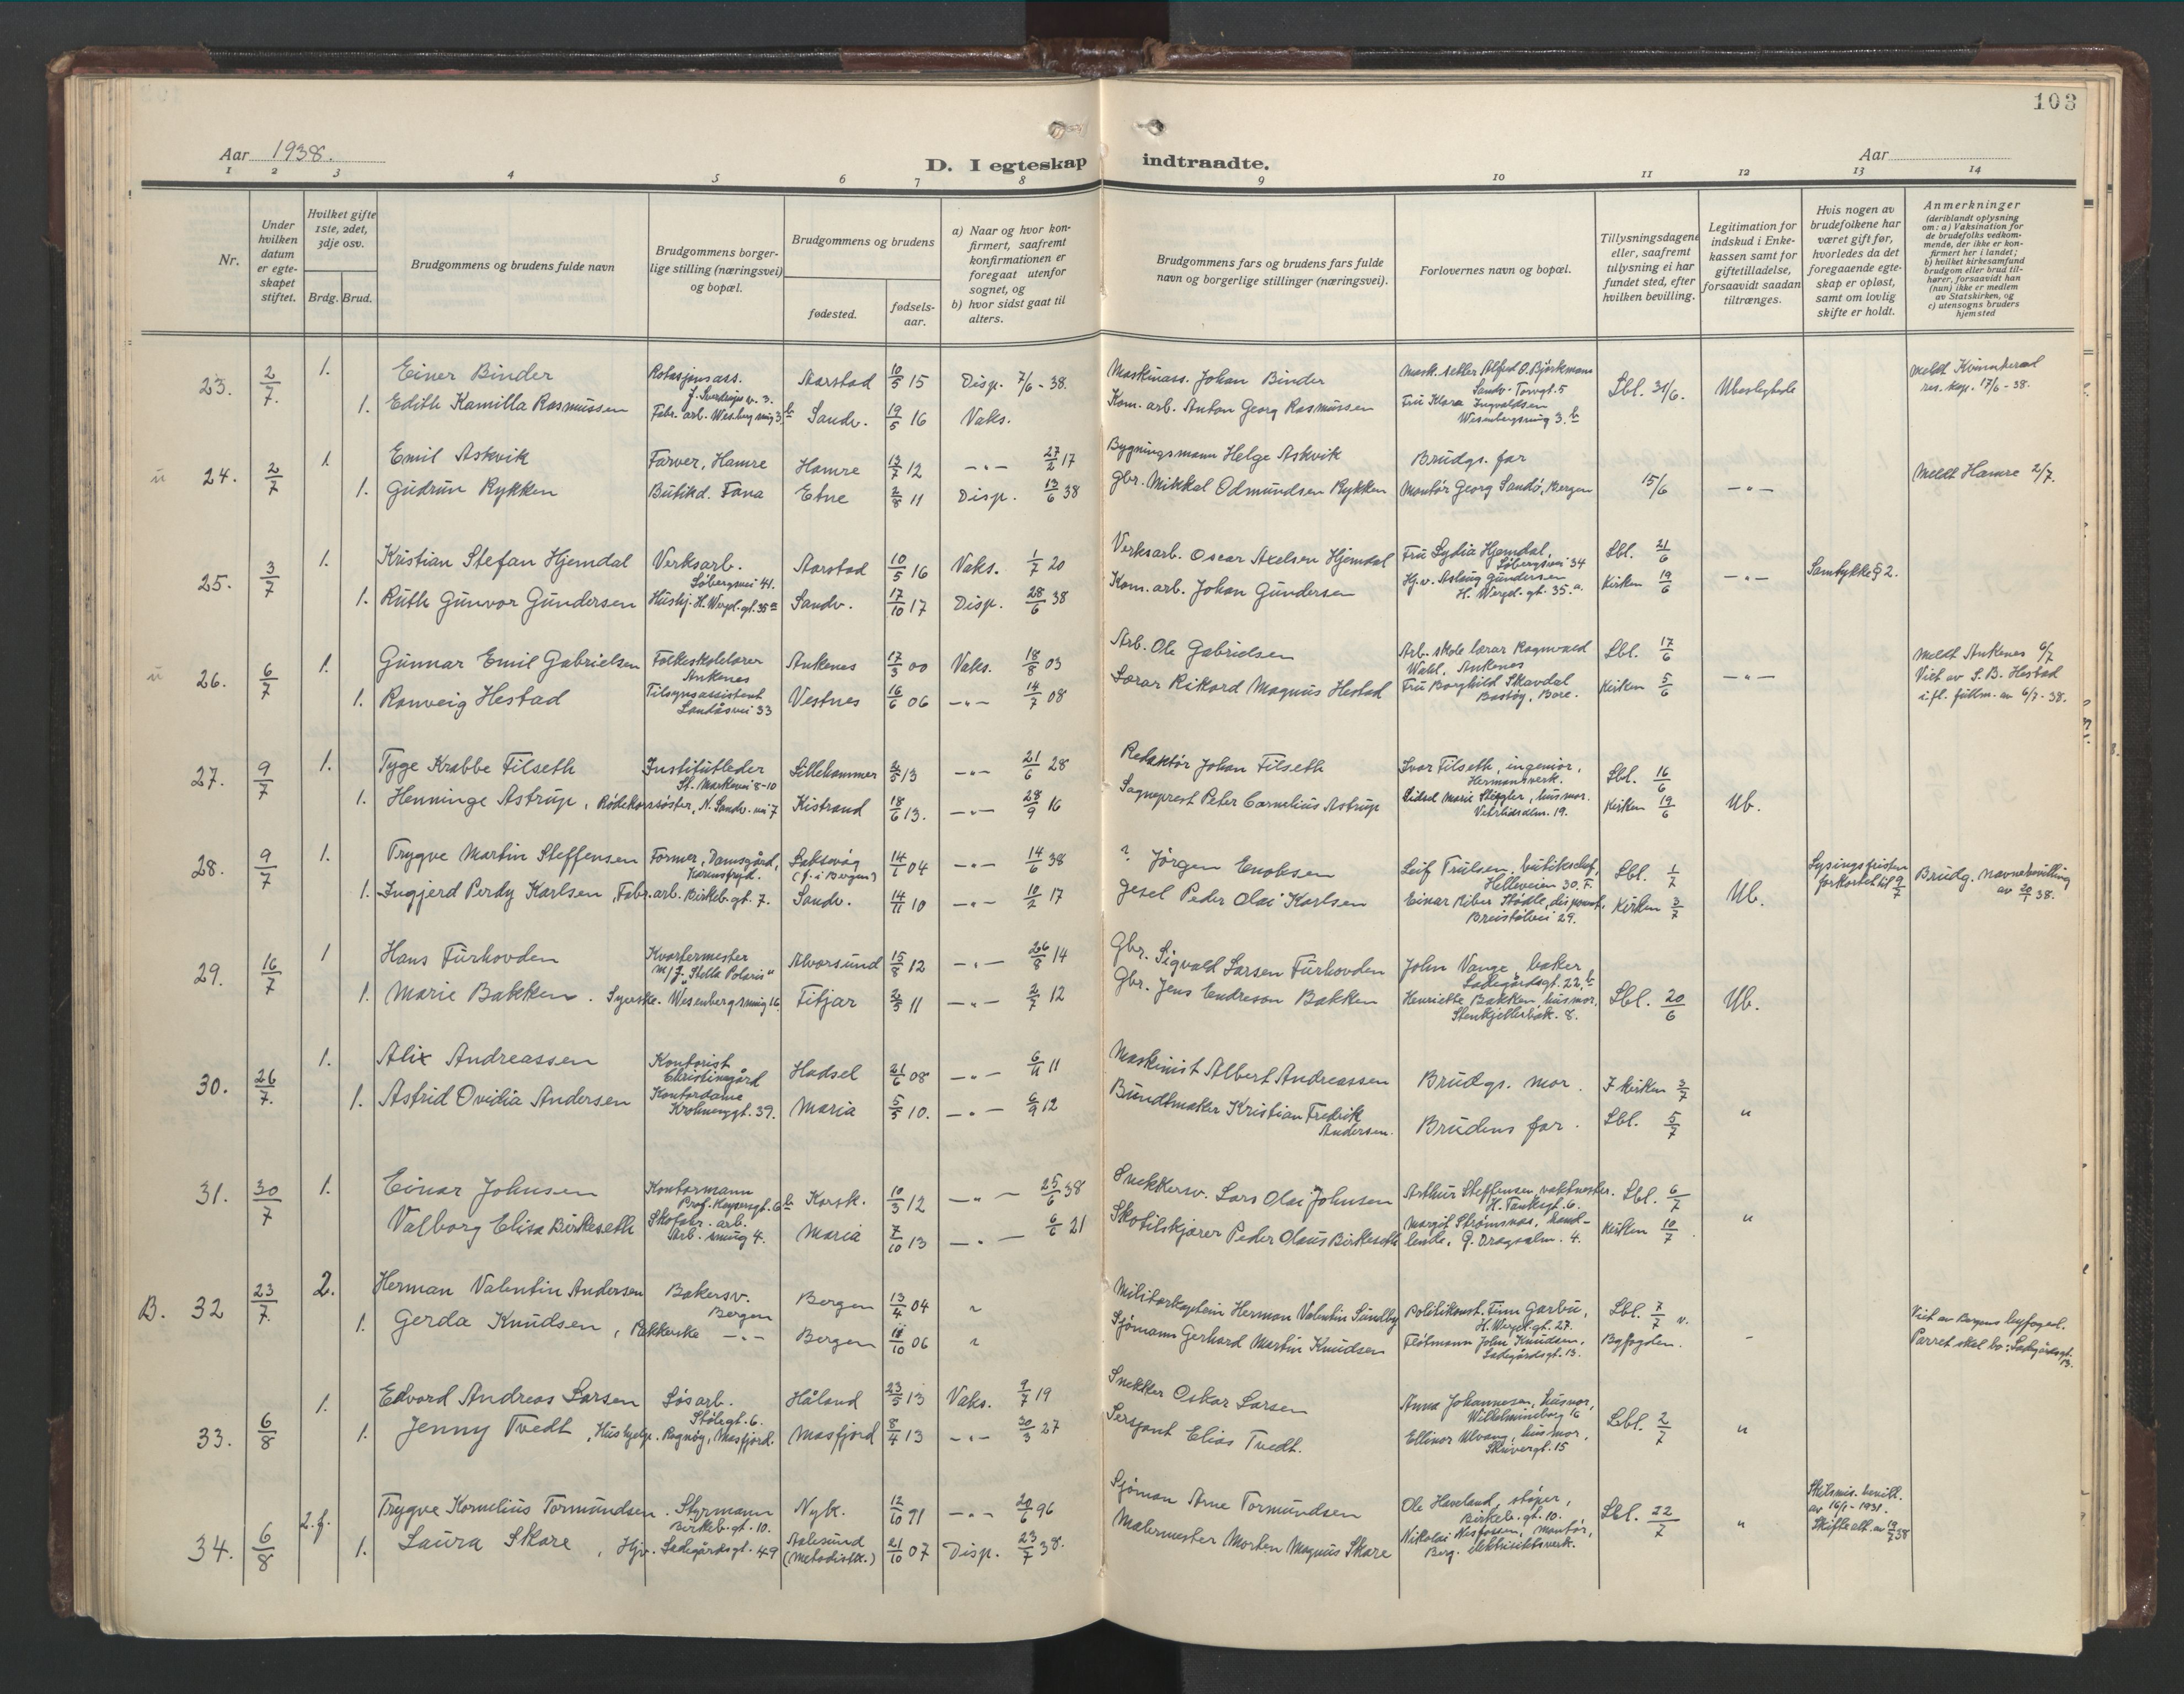 103
Aar 1938.
D. I egteskap indtraadte.
Aar
1 2 3 4 5 6 7 8 9 10 11 12 13 14
Nr.
Under hvilken datum er egte-skapet stiftet.
Hvilket gifte 1ste, 2det, 3dje osv.
Brdg. Brud.
Brudgommens og brudens fulde navn
Brudgommens borger-lige stilling (næringsvei) og bopæl.
Brudgommens og brudens
fødested.
fødsels-aar.
a) Naar og hvor kon-firmert, saafremt konfirmationen er foregaat utenfor sognet, og
b) hvor sidst gaat til alters.
Brudgommens fars og brudens fars fulde navn og borgerlige stillinger (næringsvei).
Forlovernes navn og bopæl.
Tillysningsdagene eller, saafremt tillysning ei har fundet sted, efter hvilken bevilling.
Legitimation for indskud i Enke-kassen samt for giftetilladelse, forsaavidt saadan tiltrænges.
Hvis nogen av brudefolkene har været gift før, hvorledes da det foregaaende egte-skap er opløst, samt om lovlig skifte er holdt.
Anmerkninger (deriblandt oplysning om: a) Vaksination for de brudefolks vedkom-mende, der ikke er kon-firmert her i landet; b) hvilket kirkesamfund brudgom eller brud til-hører, forsaavidt han (hun) ikke er medlem av Statskirken, og c) utensogns bruders hjemsted
23. 2/7. 1. Einer Binder Rotasjonsass. J. Sverdrups v. 3. Aarstad 10/5 15 Disp. 7/6 - 38. Maskinass. Johan Binder Mask.setter Alfred O. Björkmann Sandv. Torvgt. 5 Lbl. 31/6. Ubeslegtede meldt Kvinnherad res. kap. 17/6 - 38.
1. Edith Kamilla Rasmussen Fabr. arb. Wesbg smug 3 b Sandv. 19/5 16 Vaks. Kom. arb. Anton Georg Rasmussen Fru Klara Ingvaldsen Wesenbergsmug 3. b
u 24. 2/7 1. Emil Askvik Farver, Hamre Hamre 13/7 12 — „ — 27/2 17 Bygningsmann Helge Askvik Brudgs. far 15/6 — „ — Meldt Hamre 2/7.
1. Gudrun Rykken Butikd. Fana Etne 2/8 11 Disp. 13/6 38 Gbr. Mikkel Odmundsen Rykken Montör Georg Sandö, Bergen
25. 3/7 1. Kristian Stefan Hjemdal Verksarb. Löbergsvei 41. Aarstad 10/5 16 Vaks. 1/7 20 Verksarb. Oscar Axelsen Hjemdal Fru Lydia Hjemdal, Löbergsvei 34 Lbl. 21/6 — „ — Samtykke § 2.
1. Ruth Gunvor Gundersen Hushj. H. Wergel. gt. 35 a Sandv. 17/10 17 Disp. 28/6 38 Kom. arb. Johan Gundersen Hj. v. Aslaug Gundersen H. Wergel. gt. 35. a Kirken 19/6
u 26. 6/7 1. Gunnar Emil Gabrielsen Folkeskolelærer Ankenes Ankenes 17/3 00 Vaks. 18/8 03 Arb. Ole Gabrielsen Arb.skole lærar Ragnvald Wahl, Ankenes Lbl. 17/6 — „ — meldt Ankenes 6/7
1. Ranveig Hestad Tilsynsassistent Landåsvei 33 Vestnes 16/6 06 — „ — 14/7 08 Lærar Rikard Magnus Hestad Fru Borghild Skavdal Bastöy, Borre. Kirken 5/6 Viet av S. B. Hestad i fl. fullm. av 6/7 - 38.
27. 9/7 1. Tyge Krabbe Filseth Institutleder St. Markevei 8-10 Lillehammer 2/5 13 — „ — 21/6 28 Redaktör Johan Filseth Ivar Filseth, ingeniör, Hermansverk. Lbl. 16/6
1. Henninge Astrup, Rödekorssöster, N. Sandv. vei 7 Kistrand 18/6 13. — „ — 28/9 16 Sogneprest Peter Cornelius Astrup Sidsel Marie Stiegler, husmor. Vetrlidsalm. 19. Kirken 19/6 Ub.
28. 9/7 1. Trygve Martin Steffensen Former, Damsgård, Laksevåg (f. i Bergen) 14/1 04 — „ — 14/6 38 ? Jörgen Enoksen Leif Trulsen, butikschef, Helleveien 30. F. Lbl. 1/7 Ub. Lysingsfristen forkortet til 9/7 Brudg. navnebevilling av 20/1 38.
1. Ingjerd Perdy Karlsen, Fabr. arb. Birkeb. gt. 7. Sandv. 14/11 10 — „ — 10/2 17 Gesel Peder Olai Karlsen Einar Riber Stödle, disponent, Breistölvei 29. Kirken 3/7
29. 16/7 1 Hans Furhovden Kvartermester m/j. „Stella Polaris" Alvorsund 15/8 12 — „ — 26/8 14 Gbr. Sigvald Larsen Furhovden John Vange, baker Ladegårdsgt. 22. b Lbl. 20/6 Ub.
1. Marie Bakken. Syerske. Wesenbergsmug 16. Fitjar 2/3 11 — „ — 2/7 12 Gbr. Jens Endreson Bakken Henriette Bakken, husmor, Stenkjellerbak. 8.
30. 26/7. 1. Alix Andreassen Kontorist Christinegård Hadsel 21/6 08 — „ — 6/11 11 Maskinist Albert Andreassen Brudgs. mor. I kirken 3/7
1. Astrid Ovidia Andersen Kontordame Krohnenggt. 39. Maria 5/3 10. — „ — 6/9 12 Bundtmaker Kristian Fredrik Andersen. Brudens far. Lbl. 5/7 "
31. 30/7 1. Einar Johnsen Kontormann Prof. Keysersgt. 6 b Korsk. 10/3 12 — „ — 25/6 38 Snekkersv. Lars Olai Johnsen Arthur Steffensen, vaktmester. H. Tanksgt. 6. Lbl. 6/7 "
Valborg Elisa Birkeseth Skofabr. arb. Arb. smug 4. Maria 7/10 13 — „ — 6/6 21 Skotilskjærer Peder Olaus Birkeseth Margit Strömsnes, hand-lende, Ø. Dragsalm. 4. Kirken 10/7
B. 32 23/7. 2. Herman Valentin Andersen Bakersv. Bergen Bergen 13/4 04 " Militærkaptein Herman Valentin Sundby Politikonst. Finn Garbu, H. Wergel. gt. 27. Lbl. 7/7 v. Byfogden. - Viet av Bergens byfoged.
1. Gerda Knudsen, Pakkerske — „ — Bergen 11/10 06 " Sjömann Gerhard Martin Knudsen Flötmann John Knudsen, Ladegårdsgt. 13. Parret skal bo: Ladegårdsgt. 13.
33. 6/8 1. Edvard Andreas Larsen Løsarb. Stølegt. 6. Håland 23/5 13 Vaks. 9/7 19 Snekker Oskar Larsen Anna Johannesen, husmor, Wilhelmineborg 16 Lbl. 2/7 "
1. Jenny Tvedt, Hushjelp. Ragnöy, Masfjord. Masfjord 8/4 13 — „ — 30/3 27 Sersjant Elias Tvedt. Ellinor Ulvang, husmor, Skivergt. 15
34. 6/8 2. f. Trygve Kornelius Tormundsen. Styrmann Birkeb. gt. 10. Nyk. 12/10 91 — „ — 20/6 96 Sjöman Arne Tormundsen Ole Haveland, støper, Birkeb. gt. 10. Lbl. 22/7 " Skilsmis. bevill. av 16/1 - 1931. Skifteatt. av 19/7 38
1. Laura Skare, Hjv. Ladegårdsgt. 49 Aalesund (Metodistk.) 21/10 07 Disp. 23/7 38. Malermester Morten Magnus Skare Nikolai Wesfossen, montör, Berg. elektrisitetsverk.